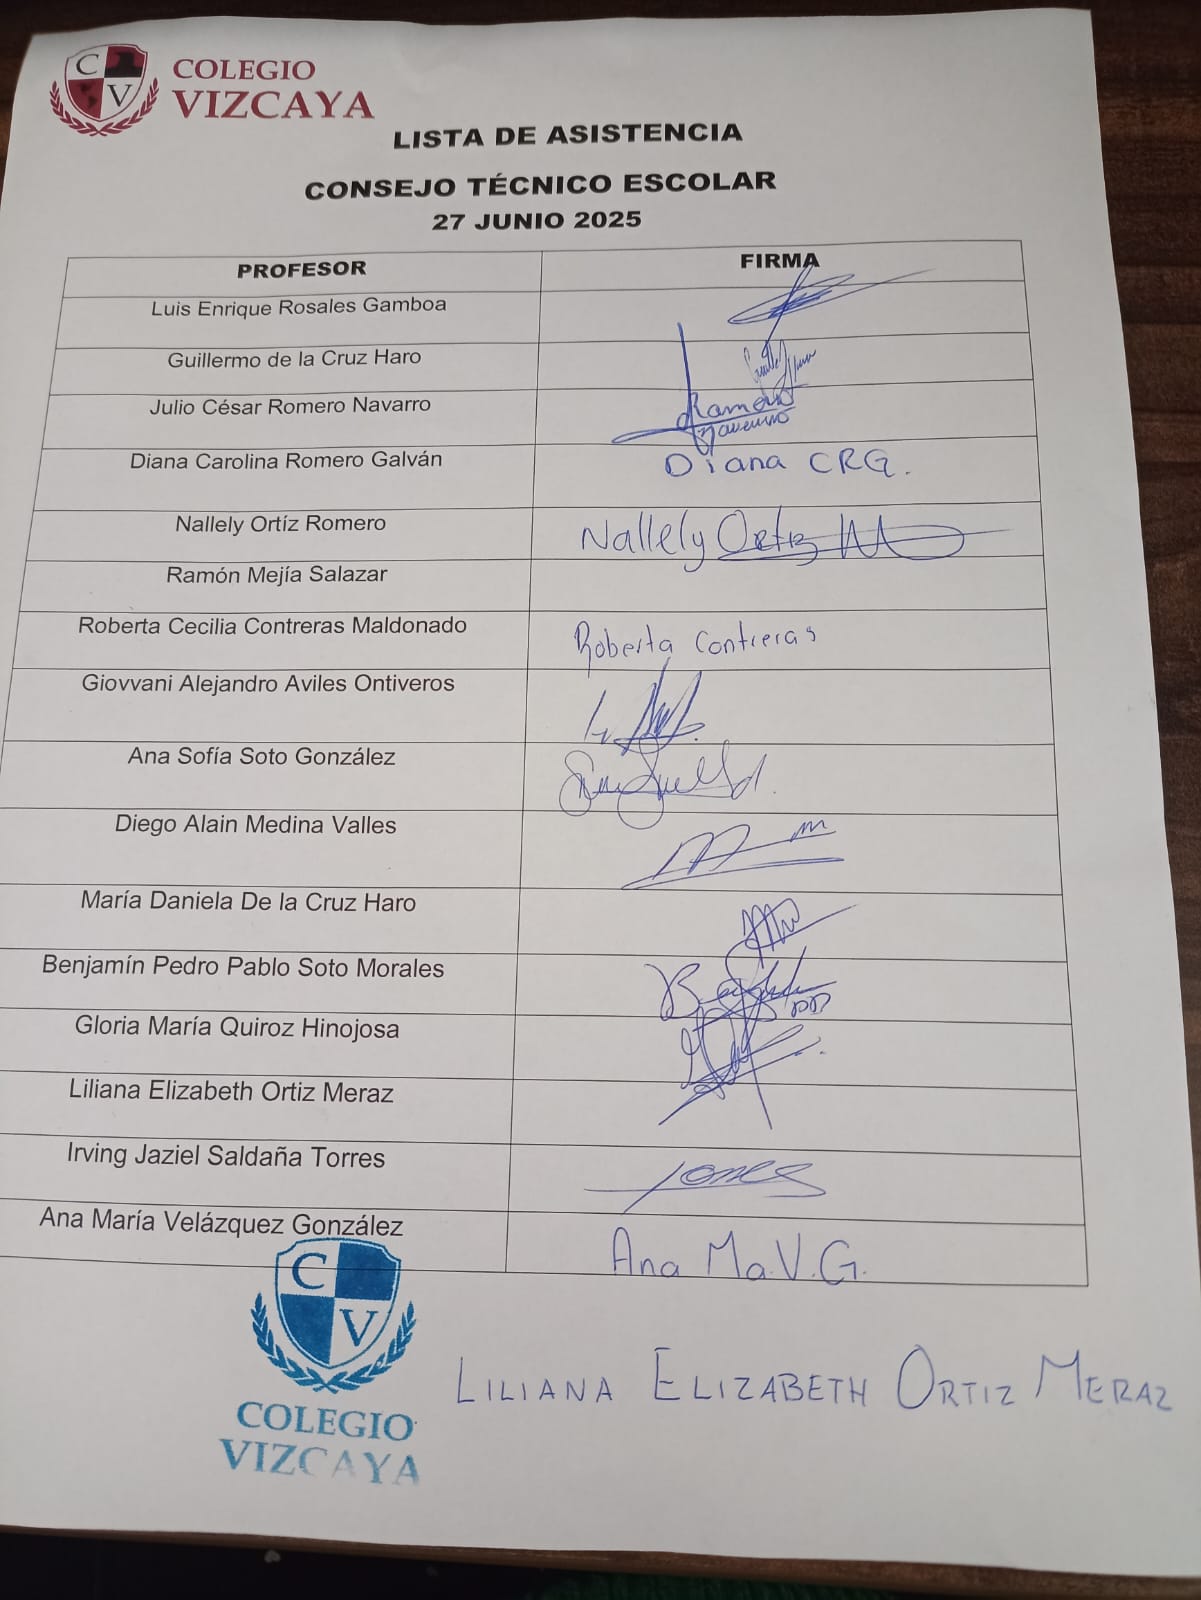 C
V
COLEGIO
VIZCAYA
LISTA DE ASISTENCIA
CONSEJO TÉCNICO ESCOLAR
27 JUNIO 2025
PROFESOR FIRMA
Luis Enrique Rosales Gamboa
Guillermo de la Cruz Haro
Julio César Romero Navarro Romero
Navarro
Diana Carolina Romero Galván Diana CRG.
Nallely Ortíz Romero Nallely Ortiz
Ramón Mejía Salazar
Roberta Cecilia Contreras Maldonado Roberta Contreras
Giovvani Alejandro Aviles Ontiveros
Ana Sofía Soto González
Diego Alain Medina Valles
María Daniela De la Cruz Haro
Benjamín Pedro Pablo Soto Morales
Gloria María Quiroz Hinojosa
Liliana Elizabeth Ortiz Meraz
Irving Jaziel Saldaña Torres
Ana María Velázquez González Ana Ma. V. G.
C
V
COLEGIO
VIZCAYA
LILIANA ELIZABETH ORTIZ MERAZ